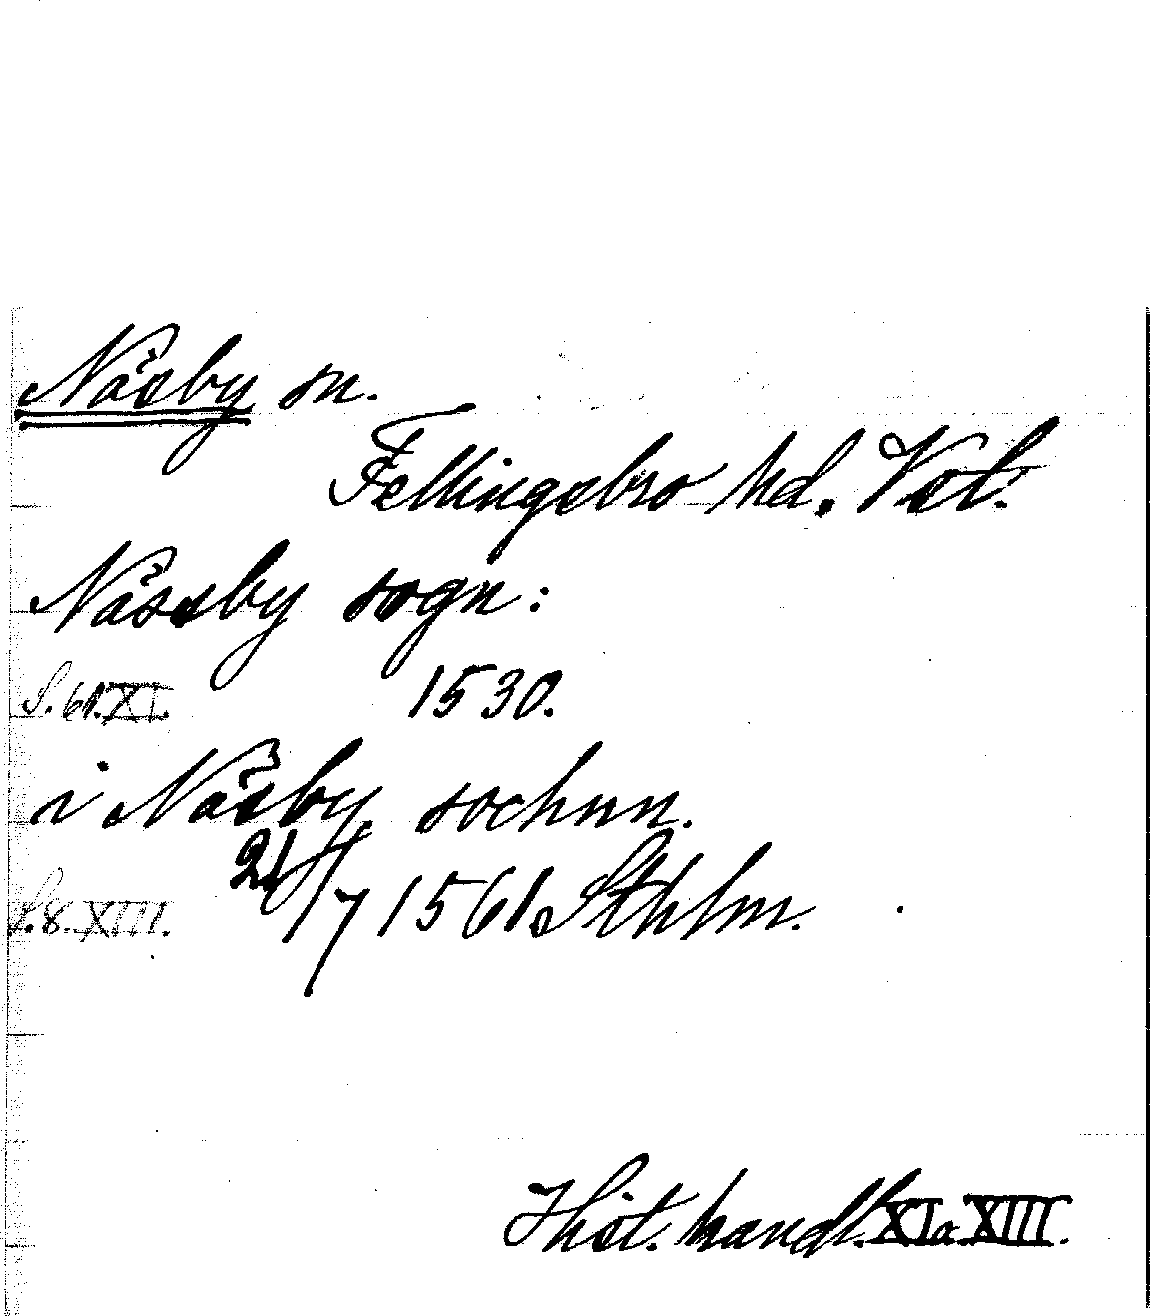 Näsby sn.
Fellingsbro hd. Vstl.
Nässby sogn:
S. 61. XI. 1530.
i Näsby sochnn.
S. 8. XIII. 21/7 1561. Sthlm.
Hist. handl. XI o. XIII.